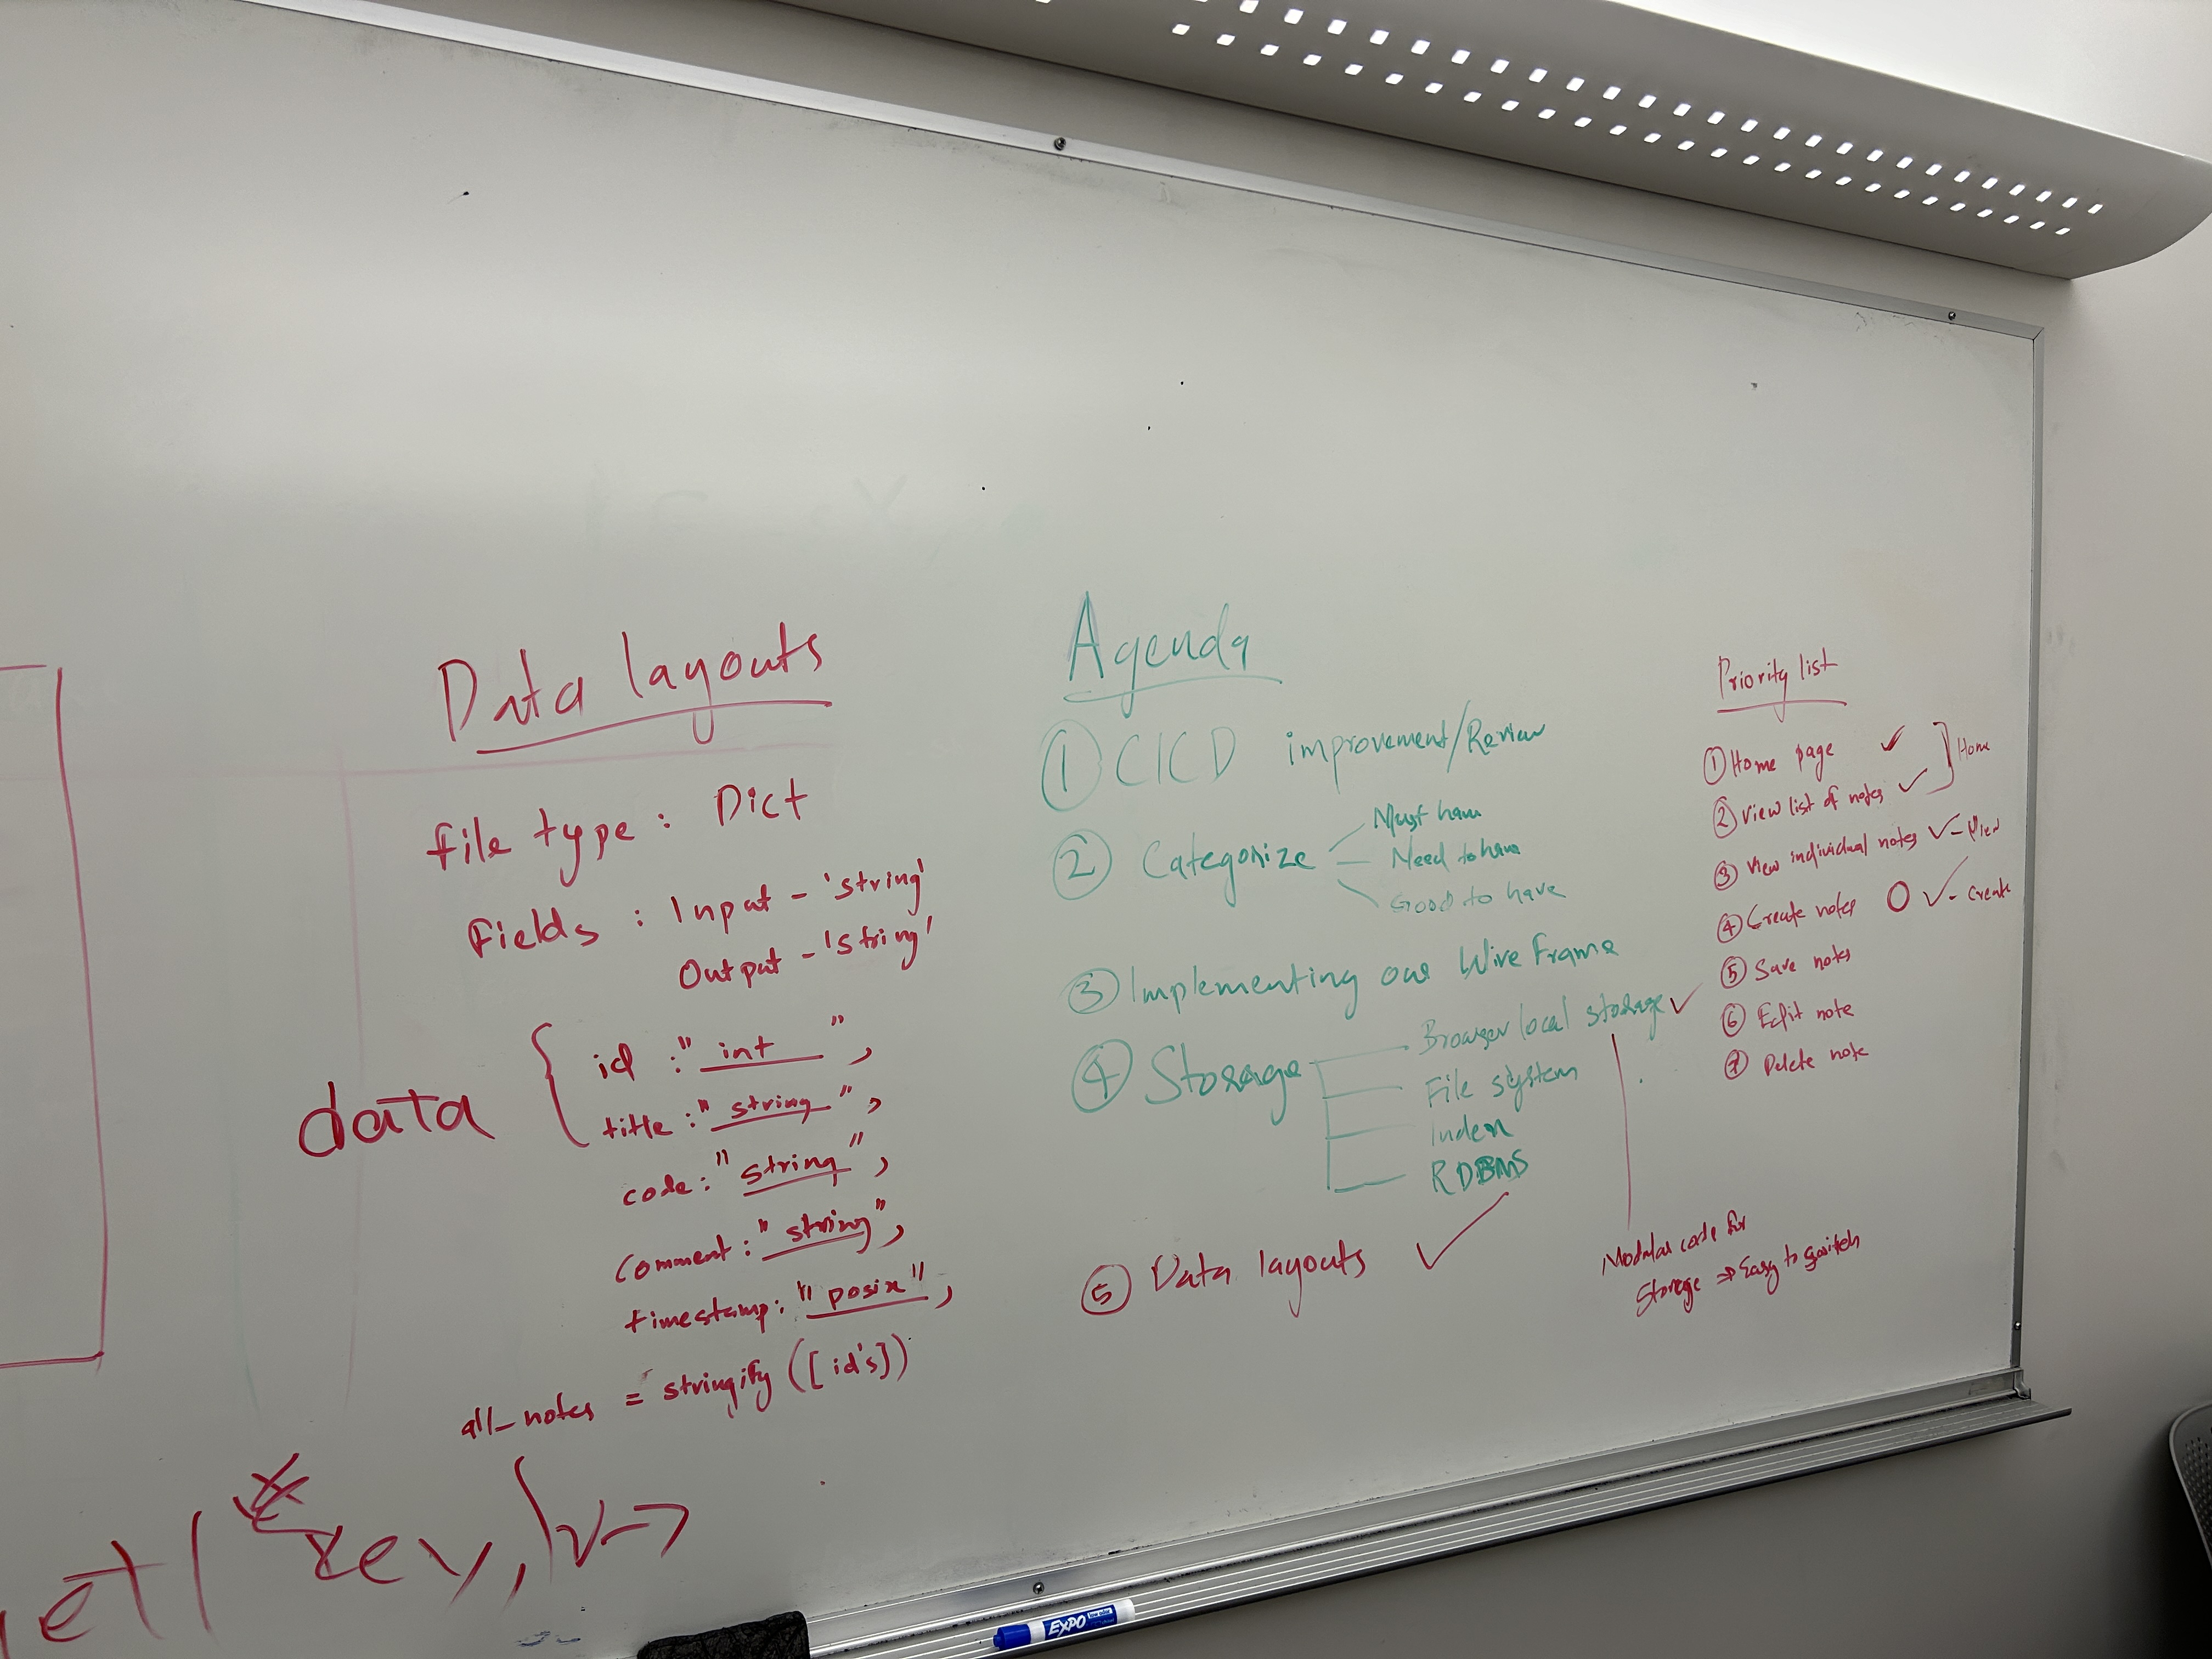 Data layouts
file type : Dict
Fields : Input - 'string'
Output - 'string'
data { id : " int ",
title : " string ",
code : " string ",
comment : " string ",
timestamp : " posix ",
all_notes = stringify ([id's])
key, v->
Agenda
① CICD improvement/Review
② Categorize
Must have
Need to have
Good to have
③ Implementing our Wire Frame
④ Storage
Browser local storage ✓
File system
Index
RDBMS
⑤ Data layouts ✓
Modular code for
Storage ⇒ Easy to switch
Priority list
① Home page ✓
② View list of notes ✓ ] Home
③ View individual notes ✓ - View
④ Create notes O ✓ - Create
⑤ Save notes
⑥ Edit note
⑦ Delete note
EXPO